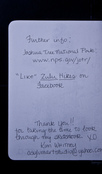 Further info:
Joshua Tree National Park
www.nps.gov/jotr/
"Like" Zulu Hikes on
facebook
Thank You!!
for taking the time to look
through my
Kim Whitney